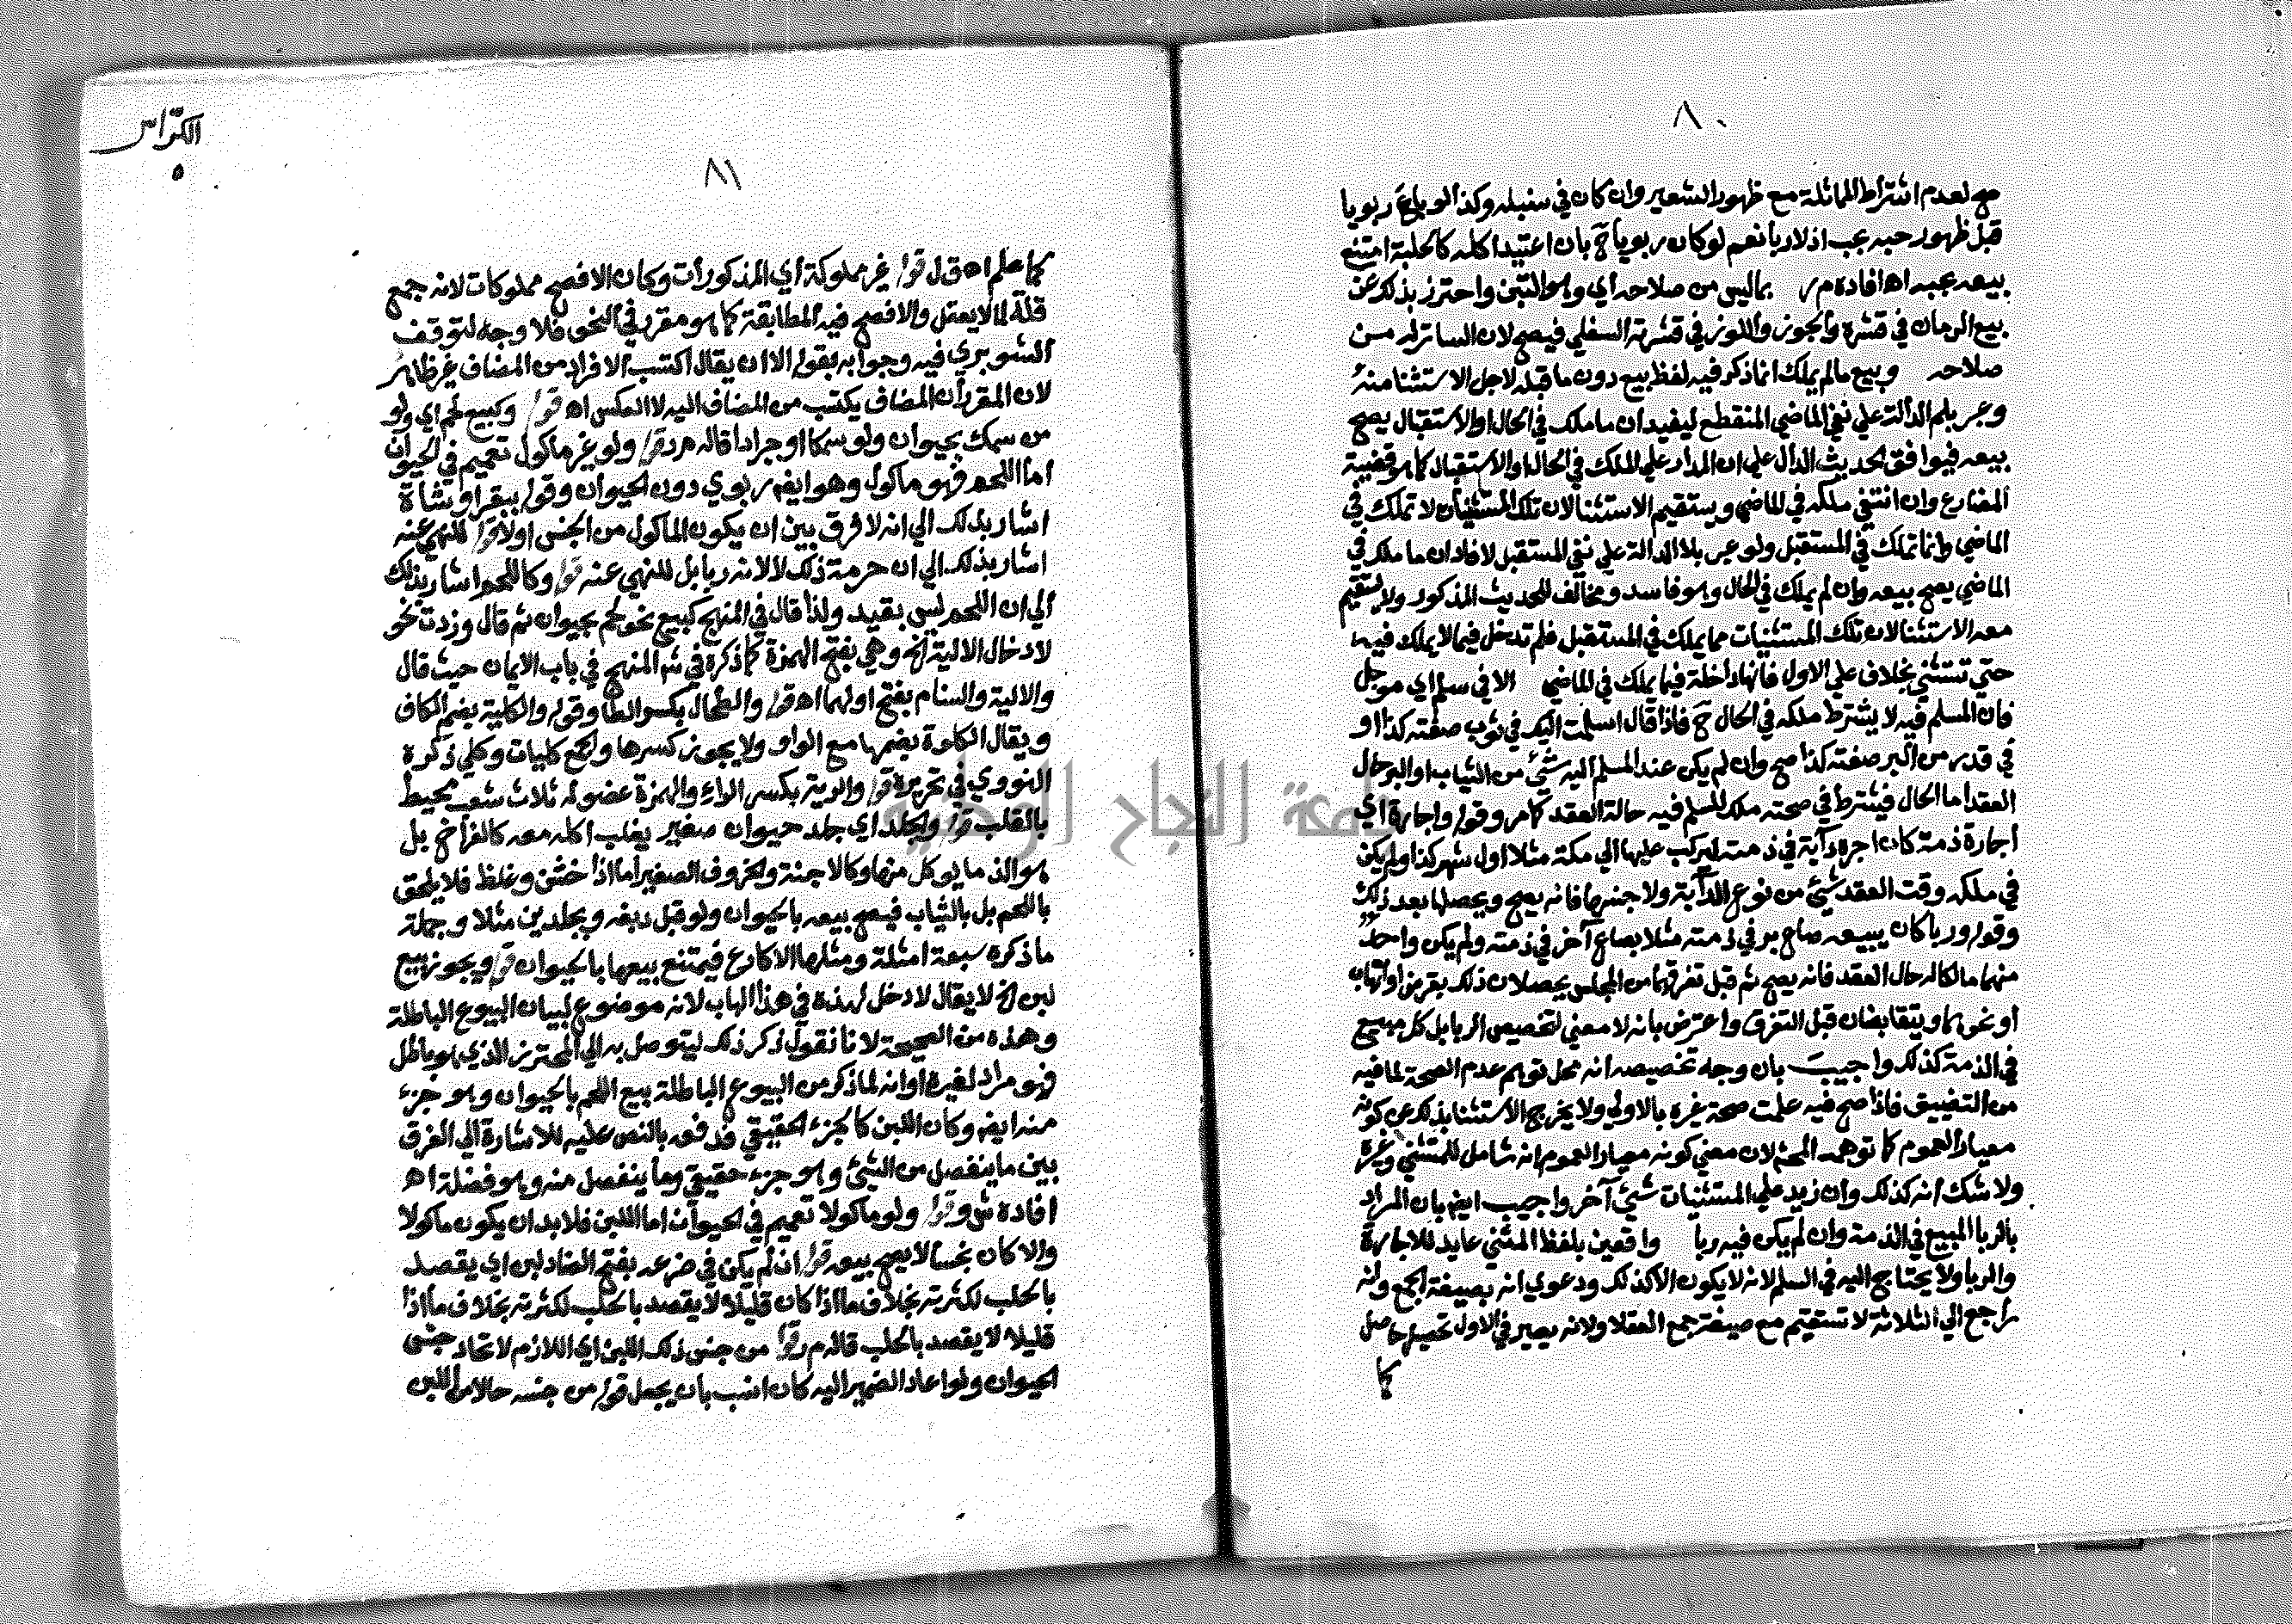 ٨٠
صح لعدم اشتراط المماثلة مع ظهور الشعير وان كان في سنبله وكذا لو باع ربويا
قبل ظهور حبه بحب اذ لا ربا نعم لو كان ربويا ح بان اعتيد اكله كالحلبة امتنع
بيعه بحبه اه افاده م ر بما ليس من صلاحه أي وهو التبن واحترز بذلك عن
بيع الرمان في قشره والجوز واللوز في قشرته السفلي فيصح لان الساتر له من
صلاحه وبيع ما لم يملك انما ذكر فيه لفظ بيع دون ما قبله لاجل الاستثنا منه
وعبر بلم الدالة علي نفي الماضي المنقطع ليفيد ان ما ملك في الحال او الاستقبال يصح
بيعه فيوافق الحديث الدال علي ان المدار علي الملك في الحال او الاستقبال كما هو قضية
المضارع وان انتفي ملكه في الماضي ويستقيم الاستثنا لان تلك المستثنيات لا تملك في
الماضي وانما تملك في المستقبل ولو عبر بلا الدالة علي نفي المستقبل لافاد ان ما ملك في
الماضي يصح بيعه وان لم يملك في الحال وهو فاسد ومخالف للحديث المذكور ولا يستقيم
معه الاستثنا لان تلك المستثنيات مما يملك في المستقبل فلم تدخل فيما لا يملك فيه
حتي تستثني بخلاف علي الاول فانها داخلة فيما يملك في الماضي الا في سلم اي موجل
فان المسلم فيه لا يشترط ملكه في الحال ح فاذا قال اسلمت اليك في ثوب صفته كذا او
في قدر من البر صفته كذا صح وان لم يكن عند المسلم اليه شيئ من الثياب او البر حال
العقد اما الحال فيشترط في صحته ملك المسلم فيه حالة العقد كما مر وقوله واجارة اي
اجارة ذمة كان اجره دآبة في ذمته ليركب عليها الي مكة مثلا اول شهر كذا ولم يكن
في ملكه وقت العقد شيئ من نوع الدآبة ولا جنسها فانه يصح ويحصلها بعد ذلك
وقوله وربا كان يبيعه صاع بر في ذمته مثلا بصاع آخر في ذمته ولم يكن واحد
منهما مالكا له حال العقد فانه يصح ثم قبل تفرقهما من المجلس يحصلان ذلك بقرض او اتهاب
او نحوهما ويتقابضان قبل التفرق واعترض بانه لا معني لتخصيص الربا بل كل مبيع
في الذمة كذلك واجيب بان وجه تخصيصه انه محل توهم عدم الصحة لما فيه
من التضييق فاذا صح فيه علمت صحة غيره بالاولي ولا يخرج الاستثنا بذلك عن كونه
معيار العموم كما توهمه المحشي لان معني كونه معيار العموم انه شامل للمستثني وغيره
ولا شك انه كذلك وان زيد علي المستثنيات شيئ آخر واجيب ايضا بان المراد
بالربا المبيع في الذمة وان لم يكن فيه ربا واقعين بلفظ المثني عايد للاجارة
والربا ولا يحتاج اليه في السلم لانه لا يكون الا كذلك ودعوي انه بصيغة الجمع وانه
راجع الي الثلاثة لا تستقيم مع صيغة جمع العقلا ولانه يصير في الاول تحصيل حاصل
كما
الكراس
٥
٨١
كما علم اه ق ل قوله غير مملوكة أي المذكورات وكان الافصح مملوكات لانه جمع
قلة لما لا يعقل والافصح فيه المطابقة كما هو مقرر في النحو فلا وجه لتوقف
الشوبري فيه وجوابه بقوله الا ان يقال اكتسب الافراد من المضاف غير ظاهر
لان المقرر أن المضاف يكتسب من المضاف اليه لا العكس اه قوله وكبيع لحم اي ولو
من سمك بحيوان ولو سمكا او جرادا قاله م ر قوله ولو غير ماكول تعميم في الحيوان
اما اللحم فهو ماكول وهو ايضا ربوي دون الحيوان وقوله ببقر او بشاة
اشار بذلك الي انه لا فرق بين ان يكون الماكول من الجنس اولا قوله للنهي عنه
اشار بذلك الي ان حرمة ذلك لا لانه ربا بل للنهي عنه قوله وكاللحم اشار بذلك
الي ان اللحم ليس بقيد ولذا قال في المنهج كبيع نحو لحم بحيوان ثم قال وزدت نحو
لادخال الالية الخ وهي بفتح الهمزة كما ذكره في شم المنهج في باب الايمان حيث قال
والالية والسنام بفتح اولهما اه قوله والطحال بكسر الطا وقوله والكلية بضم الكاف
ويقال الكلوة بضمها مع الواو ولا يجوز كسرها والجمع كليات وكلي ذكره
النووي في تحريره قوله والرية بكسر الراء والهمزة عضو له ثلاث شعب محيط
بالقلب قوله والجلد اي جلد حيوان صغير يغلب اكله معه كالفراخ بل
هو الذ ما يوكل منها وكالاجنة والخروف الصغير اما اذا خشن وغلظ فلا يلحق
باللحم بل بالثياب فيصح بيعه بالحيوان ولو قبل دبغه وبجلدين مثلا وجملة
ما ذكره سبعة امثلة ومثلها الاكارع فيمتنع بيعها بالحيوان قوله ويجوز بيع
لبن الخ لا يقال لا دخل لهذه في هذا الباب لانه موضوع لبيان البيوع الباطلة
وهذه من الصحيحة لانا نقول ذكر ذلك ليتوصل به الي المحترز الذي هو باطل
فهو مراد لغيره اوانه لما ذكر من البيوع الباطلة بيع اللحم بالحيوان وهو جزء
منه ايضا وكان اللبن كالجزء الحقيقي فدفعه بالنص عليه للاشارة الي الفرق
بين ما ينفصل من الشيئ وهو جزء حقيقي وما ينفصل منه وهو فضلة اه
افاده ش وقوله ولو ماكولا تعميم في الحيوان اما اللبن فلا بد ان يكون ماكولا
والا كان نجسا لا يصح بيعه قوله ان لم يكن في ضرعه بفتح الضاد لبن اي يقصد
بالحلب لكثرته بخلاف ما اذا كان قليلا لا يقصد بالحلب لكثرته بخلاف ما اذا
قليلا لا يقصد بالحلب قاله م ر قوله من جنس ذلك اللبن اي اللازم لاتحاد جنس
الحيوان ولو اعاد الضمير اليه كان انسب بان يجعل قوله من جنسه حالا من اللبن